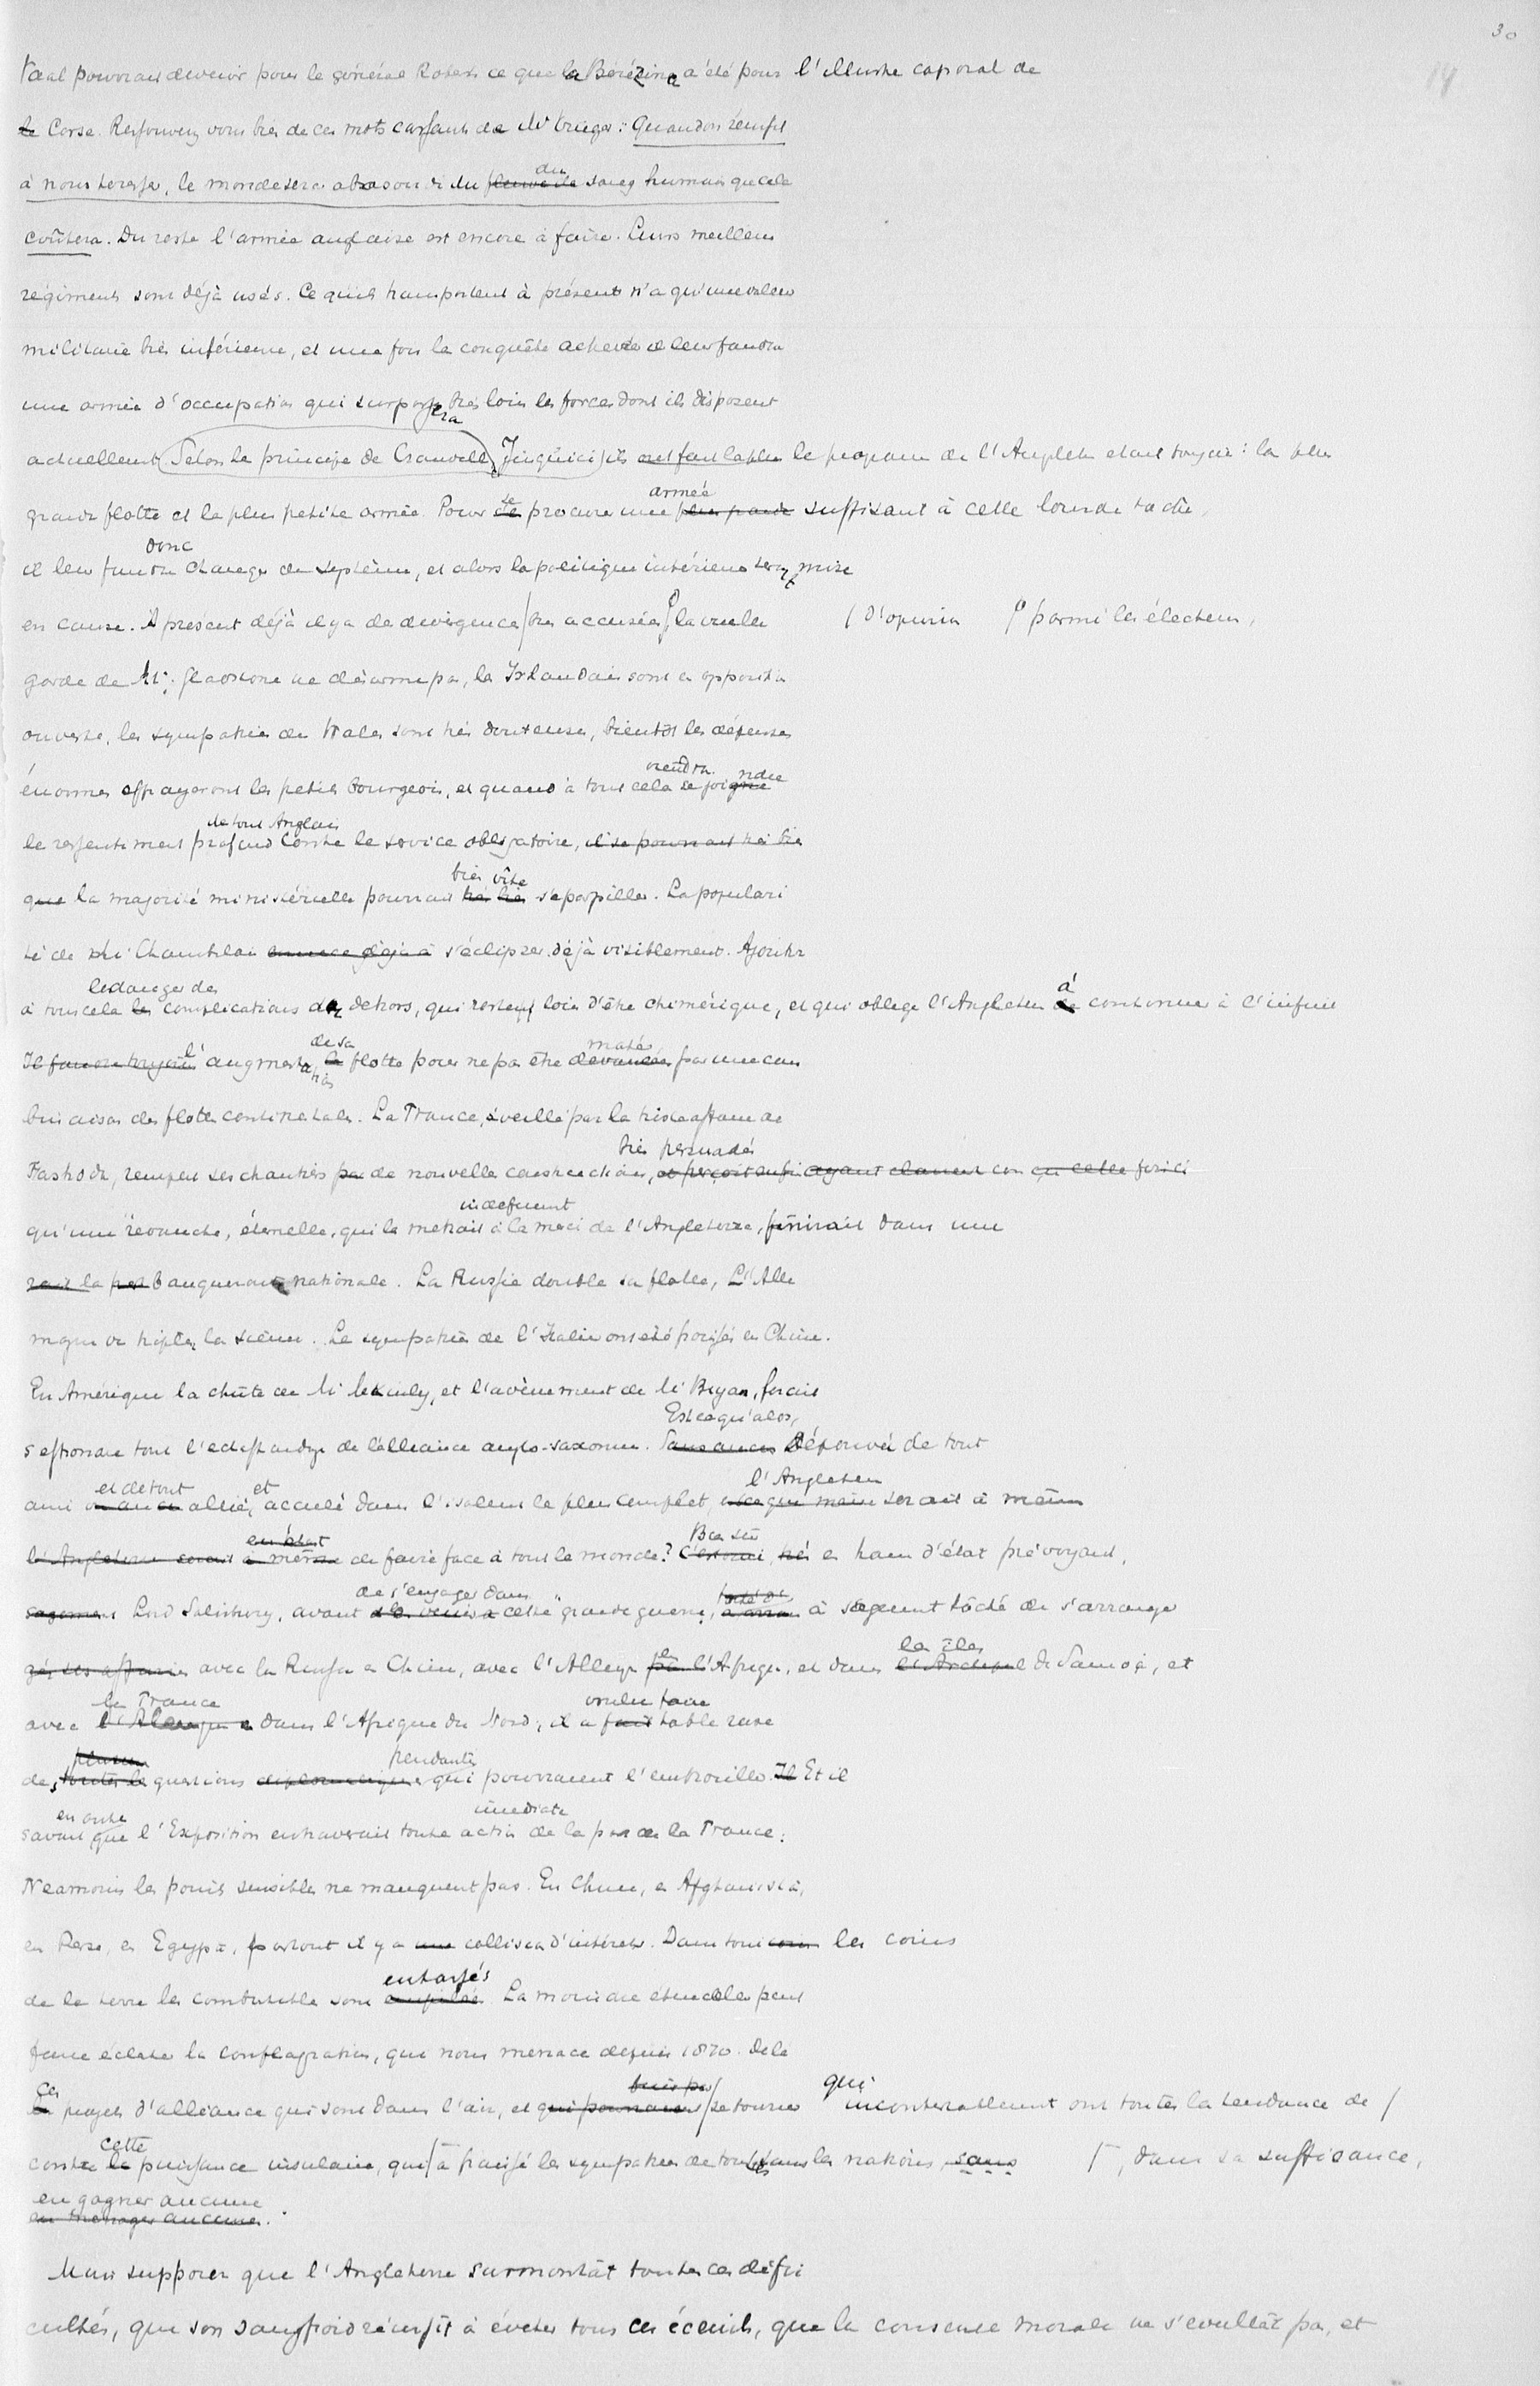 30
14
Vaal pourrait devenir pour le général Roberts ce que la Bérézina a été pour l'illustre caporal de
le Corse. Resouvenez vous bien de ces mots de Mr Krüger: Quand on réussit
à nous terasser, le monde sera abasourdi du fleuve de du sang humain que cela
coûtera. Du reste l'armée anglaise est encore à faire. Leurs meilleurs
régiments sont déjà usés. Ce qu'ils transportent à présent n'a qu'une valeur
militaire très inférieure, et une fois la conquête achevée il leur faudra
une armée d'occupation qui surpassera très loin les forces dont ils disposent
actuellement (Selon le principe de Cromwell) Jusqu'ici le programme de l'Angleterre était toujours: la plus
grande flotte et la plus petite armée. Pour se procurer une plus grande armée suffisant à cette lourde tâche,
il leur faudra donc changer de système, et alors la politique intérieure sera mise
en cause. A présent déjà il y a de divergences très accusées la vieille / d'opinion parmi les électeurs,
garde de Mr. Gladstone ne désarme pas, les Irlandais sont en opposition
ouverte, les sympathies de Wales sont très douteuses, bientôt les dépenses
énormes effrayeront les petits bourgeois, et quand à tout cela viendra se joindre
le ressentiment profond de tout Anglais contre le service obligatoire, il se pourrait très bien
que la majorité ministérielle pourrait très bien bien vite s'éparpiller. La populari
té de Mr Chamberlain s'éclipse déjà visiblement. Ajoutez
à tout cela les le danger des complications du dehors, qui restent loin d'être chimériques, et qui oblige l'Angleterre de à continuer à l'infini
Il faudra toujours l'augmentation la de sa flotte pour ne pas être devancée matée par une com
binaison des flottes continentales. La France, éveillée par la triste affaire de
Fashoda, remplit ses chantiers de nouvelles constructions, très persuadée
qu'une revanche, éternelle, qui la mettrait indéfiniment à la merci de l'Angleterre, finirait dans une
banqueroute nationale. La Russie double sa flotte, L'Alle
magne va tripler la sienne. Les sympathies de l'Italie ont été froissées en Chine.
En Amérique la chûte de Mr McKinley, et l'avènement de Mr Bryan, ferait
s'effondrer tout l'échaffaudage de l'alliance anglo-saxonne. Sans aucun Est-ce qu'alors, dépourvu de tout
ami et de tout allié, et acculé dans l'isolement le plus complet, l'Angleterre serait à même
l'Angleterre serait à même en état de faire face à tout le monde? C'est vrai, très Bien sûr en homme d'état prévoyant,
sagement Lord Salisbury, avant de s'engager dans cette grande guerre, a sagement tâché de s'arranger
ger ses affaires avec la Russie en Chine, avec l'Allemagne en l'Afrique, et dans l'Archipel les îles de Samoa, et
avec l'Allemagne la France dans l'Afrique du Nord; il a fait voulu faire table rase
des toutes les questions diplomatiques pendantes qui pourraient l'embrouiller. Il Et il
savait en outre que l'Exposition entraverait toute action immédiate de la part de la France.
Néamoins les points sensibles ne manquent pas. En Chine, en Afghanistan,
en Perse, en Egypte, partout il y a une collision d'intérêts. Dans tous coins les coins
de la terre les combustibles sont empilés entassés La moindre étincelle peut
faire éclater la conflagration, que nous menace depuis 1870. De là
les ces projets d'alliance qui sont dans l'air, et qui pourraient / se tourner qui incontestablement ont toutes la tendance de /
contre la cette puissance insulaire, qui a froissé les sympathies de toutes les nations, sans / , dans sa suffisance,
en gagner aucune
en ménager aucune.
Mais supposez que l'Angleterre surmontât toutes ces diffi
cultés, que son sangfroid réussît à éviter tous ces écueils, que la conscience morale ne s'éveillât pas, et